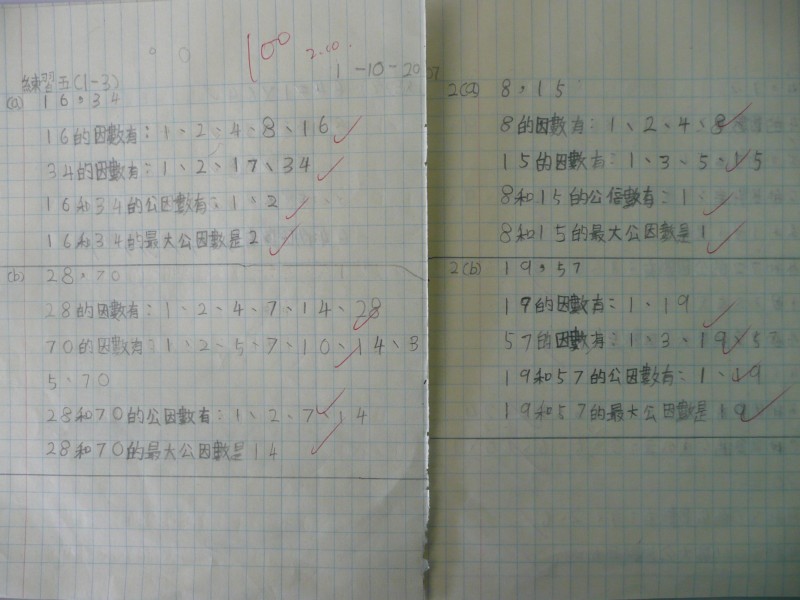 100
2.10.
1-10-20
練習五(1-3)
(a) 16,34
16的因數有:1、2、4、8、16
34的因數有:1、2、17、34
16和34的公因數有:1、2
16和34的最大公因數是2
(b) 28,70
28的因數有:1、2、4、7、14、28
70的因數有:1、2、5、7、10、14、3
5、70
28和70的公因數有:1、2、7、14
28和70的最大公因數是14
2(a) 8,15
8的因數有:1、2、4、8
15的因數有:1、3、5、15
8和15的公因數有:1
8和15的最大公因數是1
2(b) 19,57
19的因數有:1、19
57的因數有:1、3、19、5
19和57的公因數有:1、19
19和57的最大公因數是19